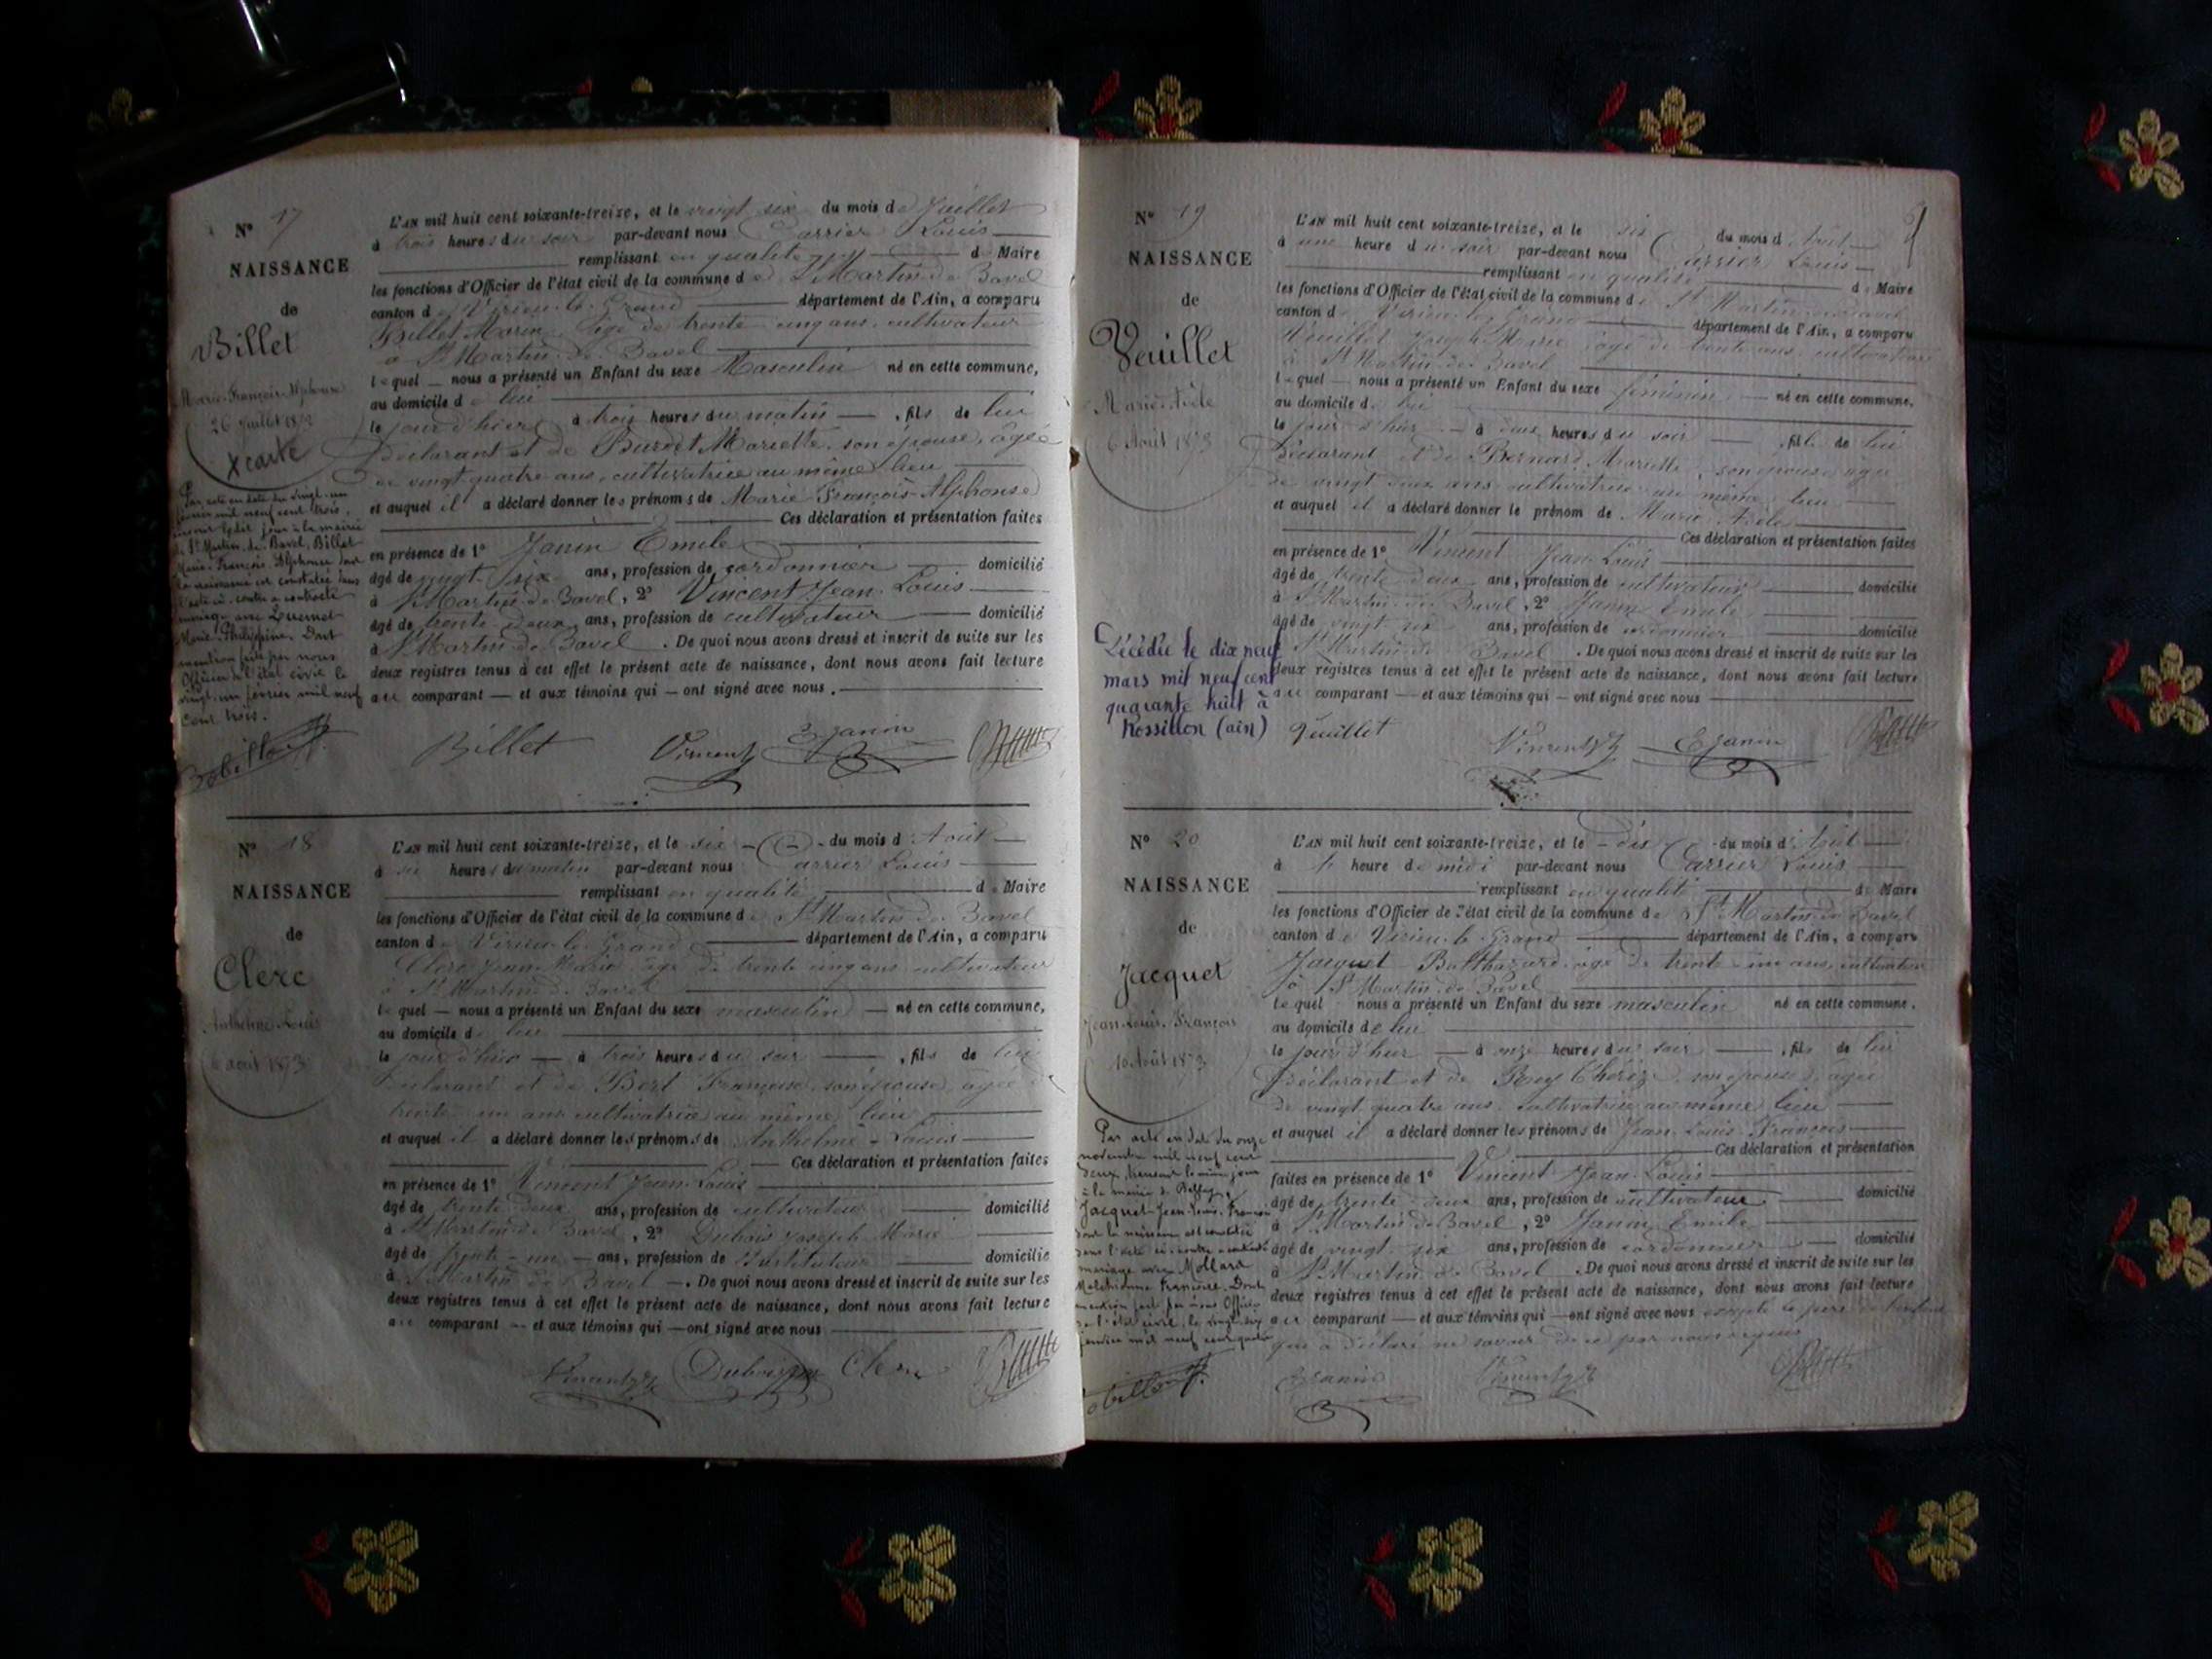 N° 17
NAISSANCE
de
Billet
Marie-François-Alphonse
26 Juillet 1873
X carte
Par acte en date du vingt-un
février mil neuf cent trois,
jour à la mairie
de St Martin-de-Bavel, Billet
Marie-François-Alphonse dont
la naissance est constatée dans
l'acte ci-contre a contracté
mariage avec
Marie-Philippine. Dont
mention faite par nous
Officier de l'état civil le
vingt-un février mil neuf
cent trois.
L'AN mil huit cent soixante-treize, et le vingt six du mois de Juillet
à trois heures du soir par-devant nous Carrier Louis
remplissant en qualité de Maire
les fonctions d'Officier de l'état civil de la commune de St Martin-de-Bavel
canton de Virieu-le-Grand département de l'Ain, a comparu
Billet Marin âgé de trente cinq ans, cultivateur
à St Martin-de-Bavel
lequel nous a présenté un Enfant du sexe Masculin né en cette commune,
au domicile de lui
le jour d'hier à trois heures du matin, fils de lui
Déclarant et de Mariette, son épouse, âgée
de vingt quatre ans, cultivatrice au même lieu
et auquel il a déclaré donner les prénoms de Marie François-Alphonse
Ces déclaration et présentation faites
en présence de 1° Janin Emile
âgé de vingt-six ans, profession de cordonnier domicilié
à St Martin-de-Bavel, 2° Vincent Jean-Louis
âgé de trente-deux ans, profession de cultivateur domicilié
à St Martin-de-Bavel. De quoi nous avons dressé et inscrit de suite sur les
deux registres tenus à cet effet le présent acte de naissance, dont nous avons fait lecture
au comparant — et aux témoins qui — ont signé avec nous.
Billet Vincent E Janin
N° 18
NAISSANCE
de
Clerc
Anthelme-Louis
6 août 1873
L'AN mil huit cent soixante-treize, et le six du mois d'Août
à six heures du matin par-devant nous Carrier Louis
remplissant en qualité de Maire
les fonctions d'Officier de l'état civil de la commune de St Martin-de-Bavel
canton de Virieu-le-Grand département de l'Ain, a comparu
Clerc Jean-Marie âgé de trente cinq ans cultivateur
à St Martin-de-Bavel
lequel — nous a présenté un Enfant du sexe masculin — né en cette commune,
au domicile de lui
le jour d'hier — à trois heures du soir, fils de lui
Déclarant et de Bert Françoise, son épouse, âgée de
trente un ans cultivatrice au même lieu
et auquel il a déclaré donner les prénoms de Anthelme-Louis
Ces déclaration et présentation faites
en présence de 1° Vincent Jean-Louis
âgé de trente deux ans, profession de cultivateur domicilié
à St Martin-de-Bavel, 2° Dubois Joseph Marie
âgé de trente-un — ans, profession de Instituteur domicilié
à St Martin de Bavel —. De quoi nous avons dressé et inscrit de suite sur les
deux registres tenus à cet effet le présent acte de naissance, dont nous avons fait lecture
au comparant — et aux témoins qui — ont signé avec nous
Vincent Dubois Clerc
N° 19
NAISSANCE
de
Veuillet
Marie-Adèle
6 Août 1873
Décédée le dix neuf
mars mil neuf cent
quarante huit à
Rossillon (ain)
L'AN mil huit cent soixante-treize, et le six du mois d'Août
à une heure du soir par-devant nous Carrier Louis
remplissant en qualité de Maire
les fonctions d'Officier de l'état civil de la commune de St Martin-de-Bavel
canton de Virieu-le-Grand département de l'Ain, a comparu
Veuillet Joseph Marie âgé de trente ans, cultivateur
à St Martin-de-Bavel
lequel — nous a présenté un Enfant du sexe féminin — né en cette commune,
au domicile de lui
le jour d'hier — à deux heures du soir, fille de lui
Déclarant et de Bernard Mariette, son épouse âgée
de vingt deux ans cultivatrice au même lieu
et auquel il a déclaré donner le prénom de Marie-Adèle
Ces déclaration et présentation faites
en présence de 1° Vincent Jean-Louis
âgé de trente deux ans, profession de cultivateur domicilié
à St Martin-de-Bavel, 2° Janin Emile
âgé de vingt six ans, profession de cordonnier domicilié
St Martin-de-Bavel. De quoi nous avons dressé et inscrit de suite sur les
deux registres tenus à cet effet le présent acte de naissance, dont nous avons fait lecture
au comparant — et aux témoins qui — ont signé avec nous
Veuillet Vincent E Janin
N° 20
NAISSANCE
de
Jacquet
Jean-Louis-François
10 Août 1873
Par acte en date du onze
novembre mil neuf cent
deux,
à la mairie de
Jacquet Jean-Louis-François
dont la naissance est constatée
dans l'acte ci-contre a contracté
mariage avec Mollard
Françoise. Dont
mention faite par nous Officier
de l'état civil, le vingt-six
L'AN mil huit cent soixante-treize, et le dix du mois d'Août
à heure de midi par-devant nous Carrier Louis
remplissant en qualité de Maire
les fonctions d'Officier de l'état civil de la commune de St Martin-de-Bavel
canton de Virieu-le-Grand département de l'Ain, a comparu
Jacquet Balthazard âgé de trente-un ans, cultivateur
à St Martin-de-Bavel
lequel nous a présenté un Enfant du sexe masculin né en cette commune.
au domicile de lui
le jour d'hier — à onze heures du soir, fils de lui
Déclarant et de Rey son épouse, âgée
de vingt quatre ans, cultivatrice au même lieu
et auquel il a déclaré donner les prénoms de Jean-Louis-François
Ces déclaration et présentation
faites en présence de 1° Vincent Jean-Louis
âgé de trente-deux ans, profession de cultivateur domicilié
à St Martin-de-Bavel, 2° Janin Emile
âgé de vingt six ans, profession de cordonnier domicilié
à St Martin de Bavel. De quoi nous avons dressé et inscrit de suite sur les
deux registres tenus à cet effet le présent acte de naissance, dont nous avons fait lecture
au comparant — et aux témoins qui — ont signé avec nous excepté le père de l'enfant
qui a déclaré ne savoir de ce par nous requis
E Janin Vincent